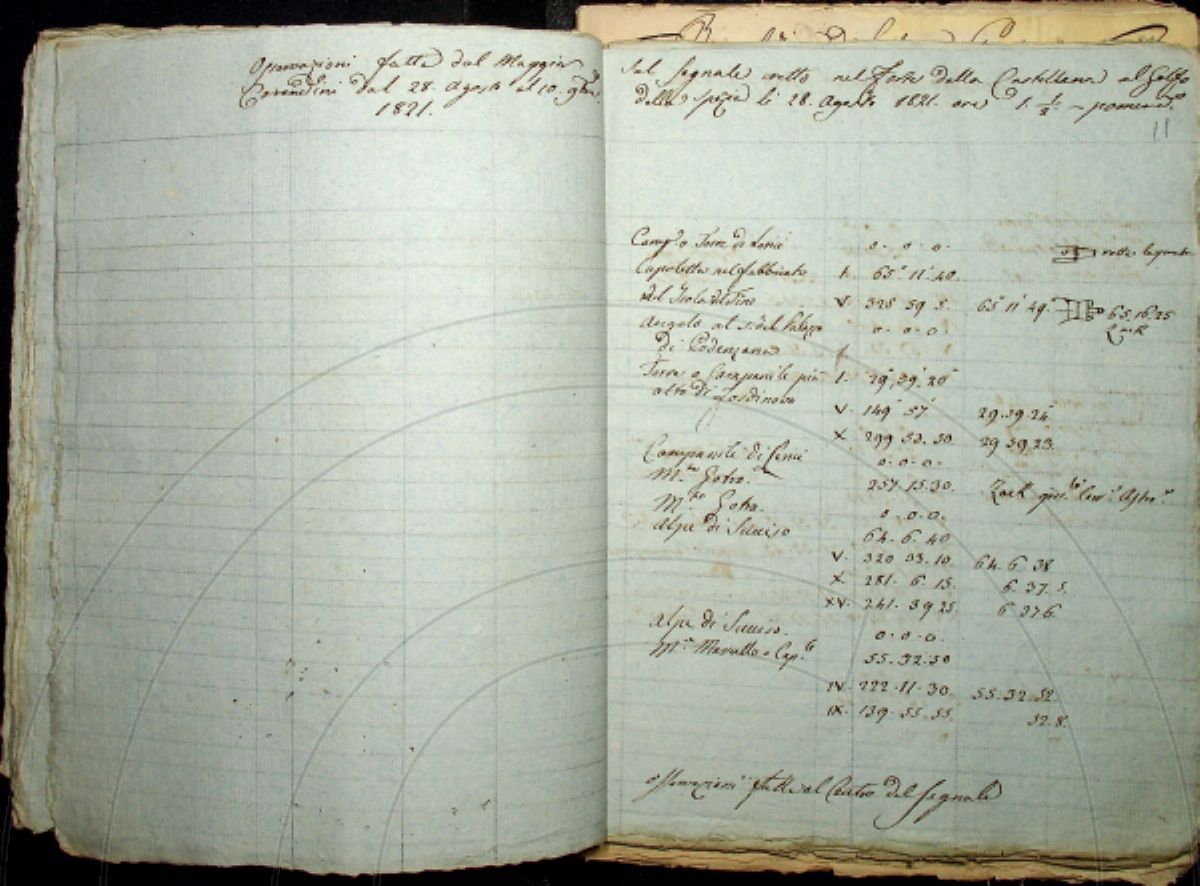 Operazioni fatte dal Maggior
dal 28. Agosto al 10. 9bre
1821.
Sul Segnale eretto nel Forte della Castellana al Golfo
della Spezia li 28. Agosto 1821. ore 1. 1/2 - pomerid.
11
Camp. o Torre di 0. 0. 0.
Cupoletta nel fabbricato I. 65° 11' 40.
del Isola del Tino V. 325 59 5. 65° 11' 49" 65.16.25
Angolo al S. del Palazzo 0. 0. 0 Zack
Di Podenzana
Torre o Campanile più I. 29° 59' 20"
alto di Fosdinova
V. 149° 57' 29.59.24
X. 299 53. 50 29 59.23.
Campanile di 0. 0. 0.
M.te Gotro 257. 15. 30. Zack
M.te Gotra. 0. 0. 0.
Alpe di Succiso 64. 6. 40
V. 320 33. 10. 64. 6. 38
X. 281. 6. 15. 6. 37. 5.
XV. 241. 39 25. 6 37 6
Alpe di Succiso. 0. 0. 0.
M.te 55. 32. 50
IV. 222. 11. 30. 55. 32. 52.
IX. 139. 55. 55. 52. 8.
Osservazioni fatte al Centro del Segnale